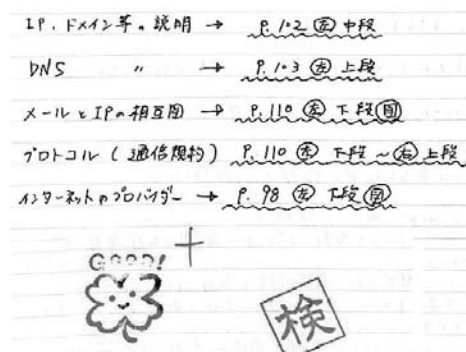 IP. ドメイン等の説明 → P.102 ㊧ 中段
DNS 〃 → P.103 ㊧ 上段
メールとIPの相互図 → P.110 ㊧ 下段 ㊂
プロトコル(通信規約) P.110 ㊧ 下段〜㊨上段
インターネットのプロバイダー → P.98 ㊧ 下段
GOOD!
検